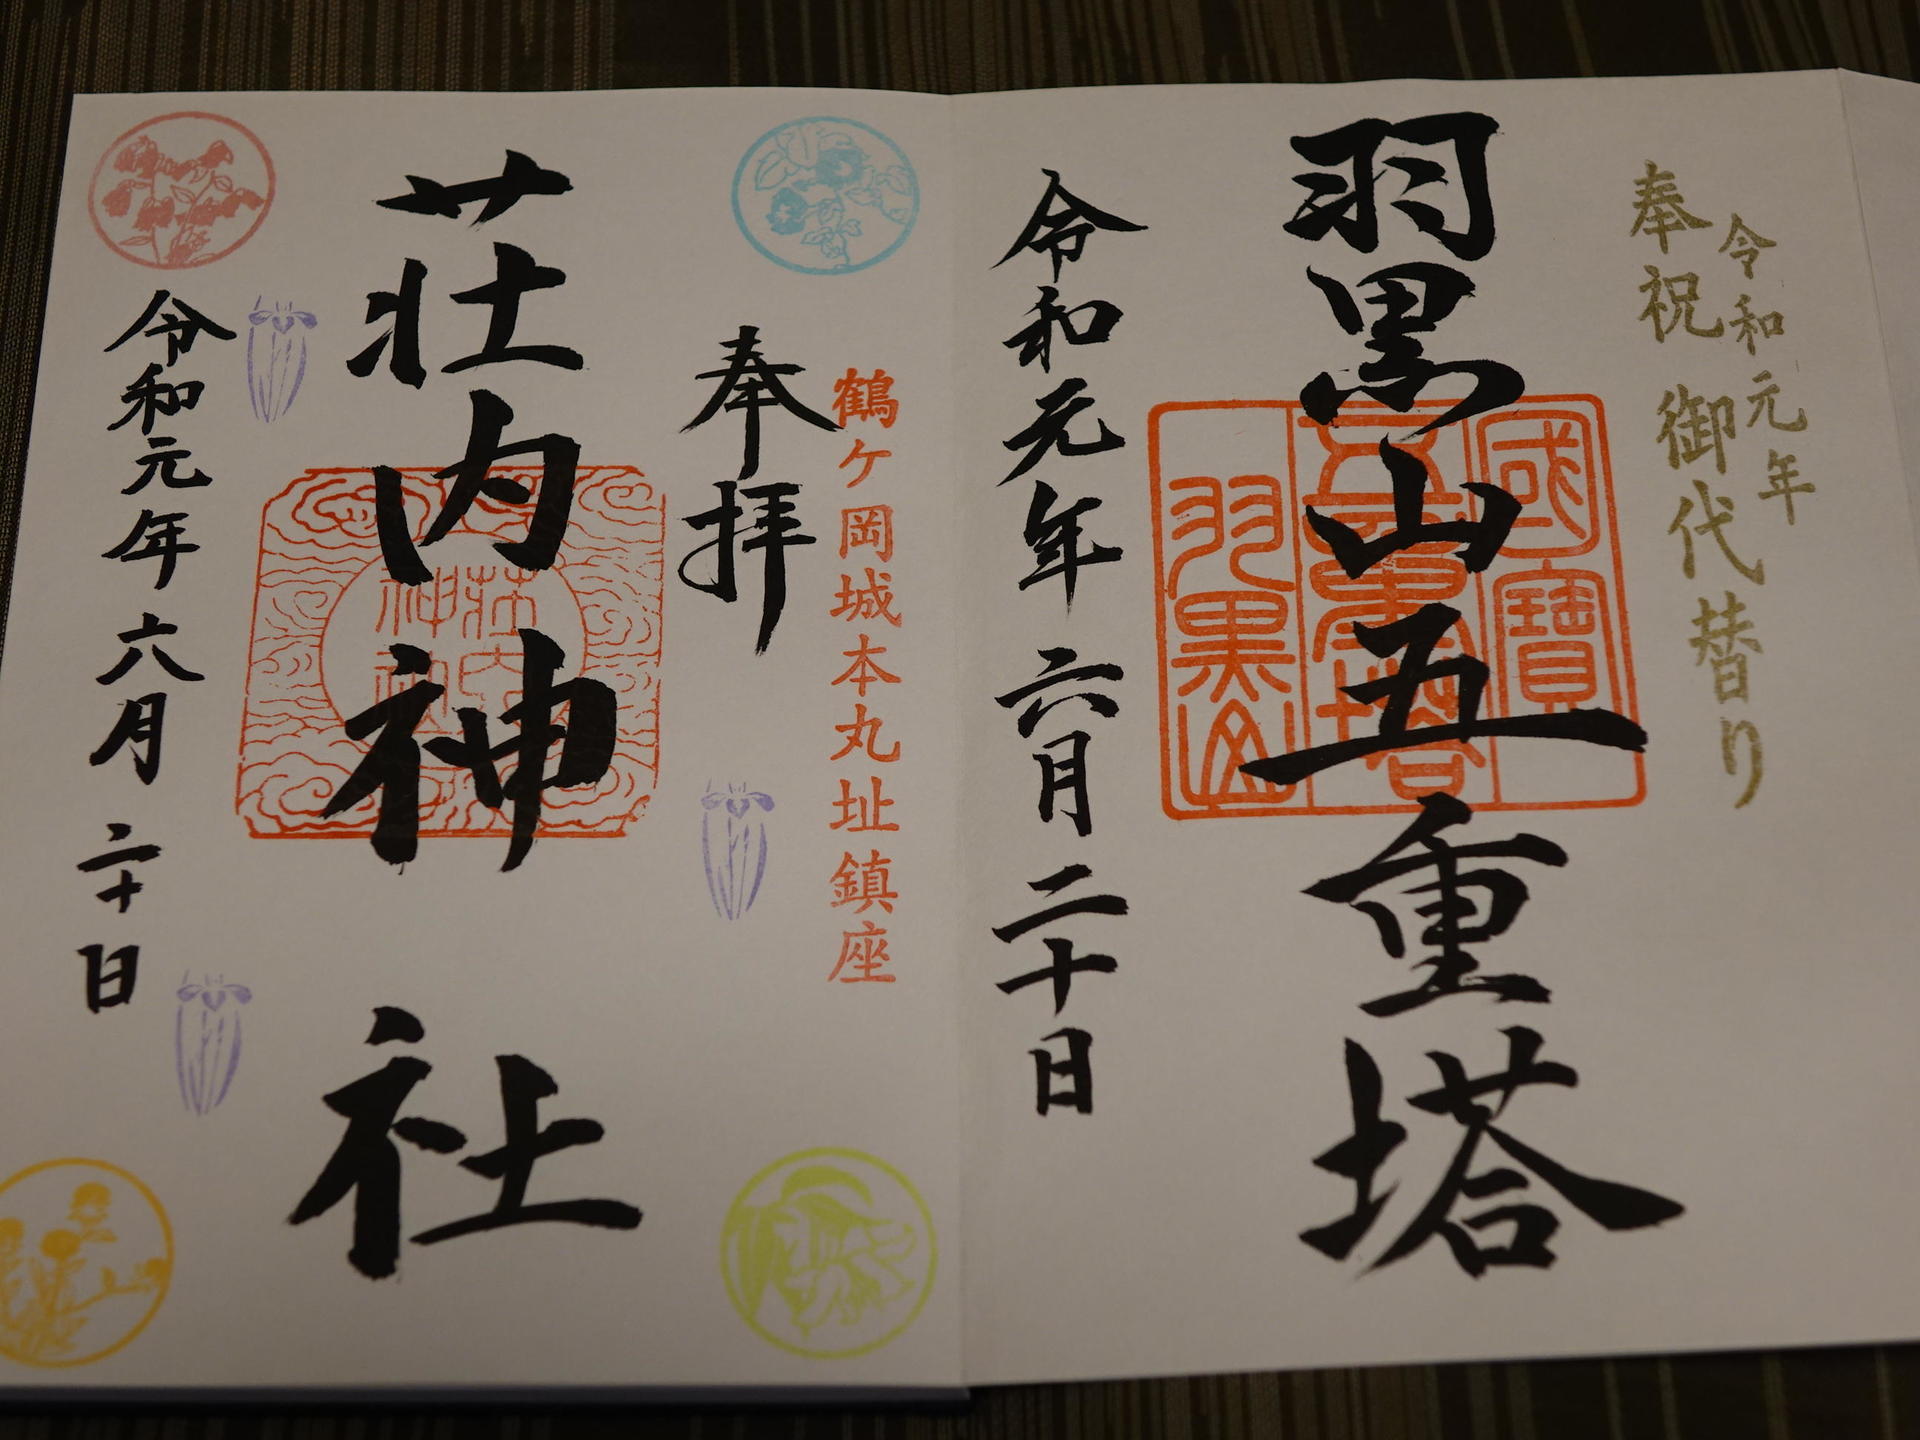 令和元年
奉祝 御代替り
羽黒山五重塔
國寶
五重塔
羽黒山
令和元年六月二十日
鶴ケ岡城本丸址鎮座
奉拝
荘内神社
荘内
神社
令和元年六月二十日